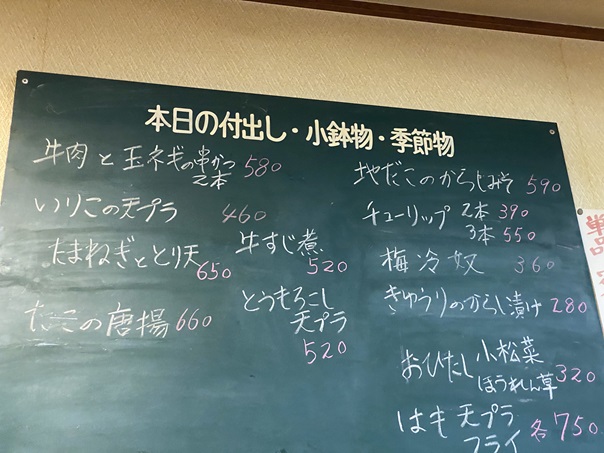 本日の付出し・小鉢物・季節物
牛肉と玉ネギの串かつ 580
2本
いりこの天プラ 460
たまねぎととり天 650
牛すじ煮 520
たこの唐揚 660
とうもろこし
天プラ
520
地だこのからしみそ 590
チューリップ 2本 390
3本 550
梅冷奴 360
きゅうりのからし漬け 280
おひたし 小松菜
ほうれん草 320
はも 天プラ
フライ
各750
単品